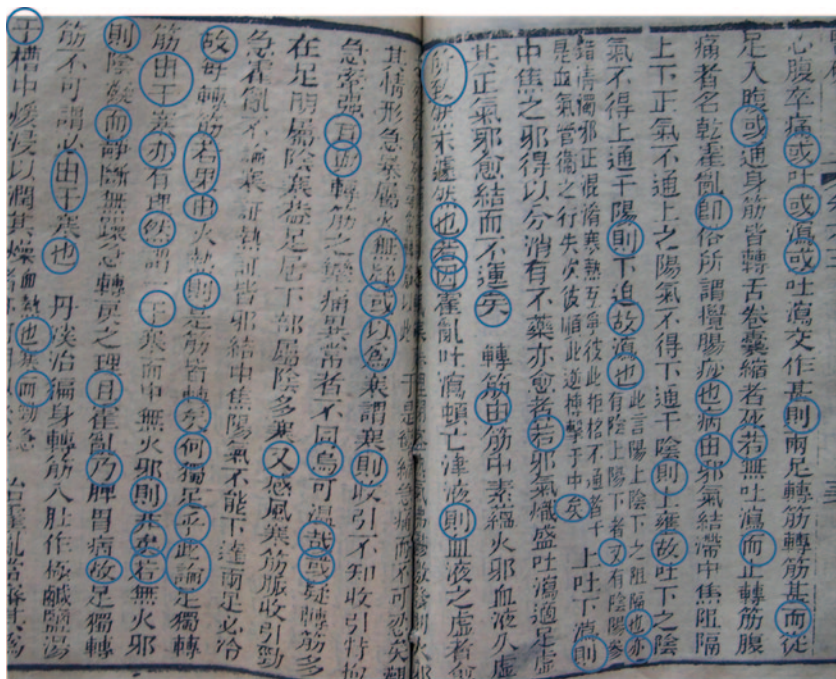 心腹卒痛或吐或瀉或吐瀉交作甚則兩足轉筋轉筋甚而從
足入腹或通身筋皆轉舌卷囊縮者死若無吐瀉而止轉筋腹
痛者名乾霍亂即俗所謂攪腸痧也病由邪氣結滯中焦阻隔
上下正氣不通上之陽氣不得下通于陰則上雍故吐下之陰
氣不得上通于陽則下迫故瀉也此言陽上陰下之阻隔也亦有陰上陽下者又有陰陽參
錯清濁邪正混淆寒熱互爭彼此拒格不通者千是血氣營衛之行失次彼順此逆棟擊于中矣 上吐下瀉則
中焦之邪得以分消有不藥亦愈者若邪氣熾盛吐瀉適足虛
其正氣邪愈結而不運矣 轉筋由筋中素蘊火邪血液久虛
所致然未遽然也若因霍亂吐瀉頓亡津液則血液之虛者愈
其情形急暴屬火無疑或以為寒謂寒則收引不知收引特拘
急牽強耳與轉筋之痛異常者不同烏可溫哉或疑轉筋多
在足屬陰寒蓋足居下部屬陰多寒又感風寒筋脈收引勁
急霍亂不論寒証熱証皆邪結中焦陽氣不能下達兩足必冷
故每轉筋若果由火熱則是筋皆轉矣何獨足乎此論足獨轉
筋由于寒亦有理然謂一于寒而中無火邪則非矣若無火邪
則陰凝而靜斷無躁急轉戾之理且霍亂乃脾胃病故足獨轉
筋不可謂必由于寒也 丹溪治徧身轉筋入肚作極鹹鹽湯
于槽中煖浸以潤其燥血熱也寒而勁急